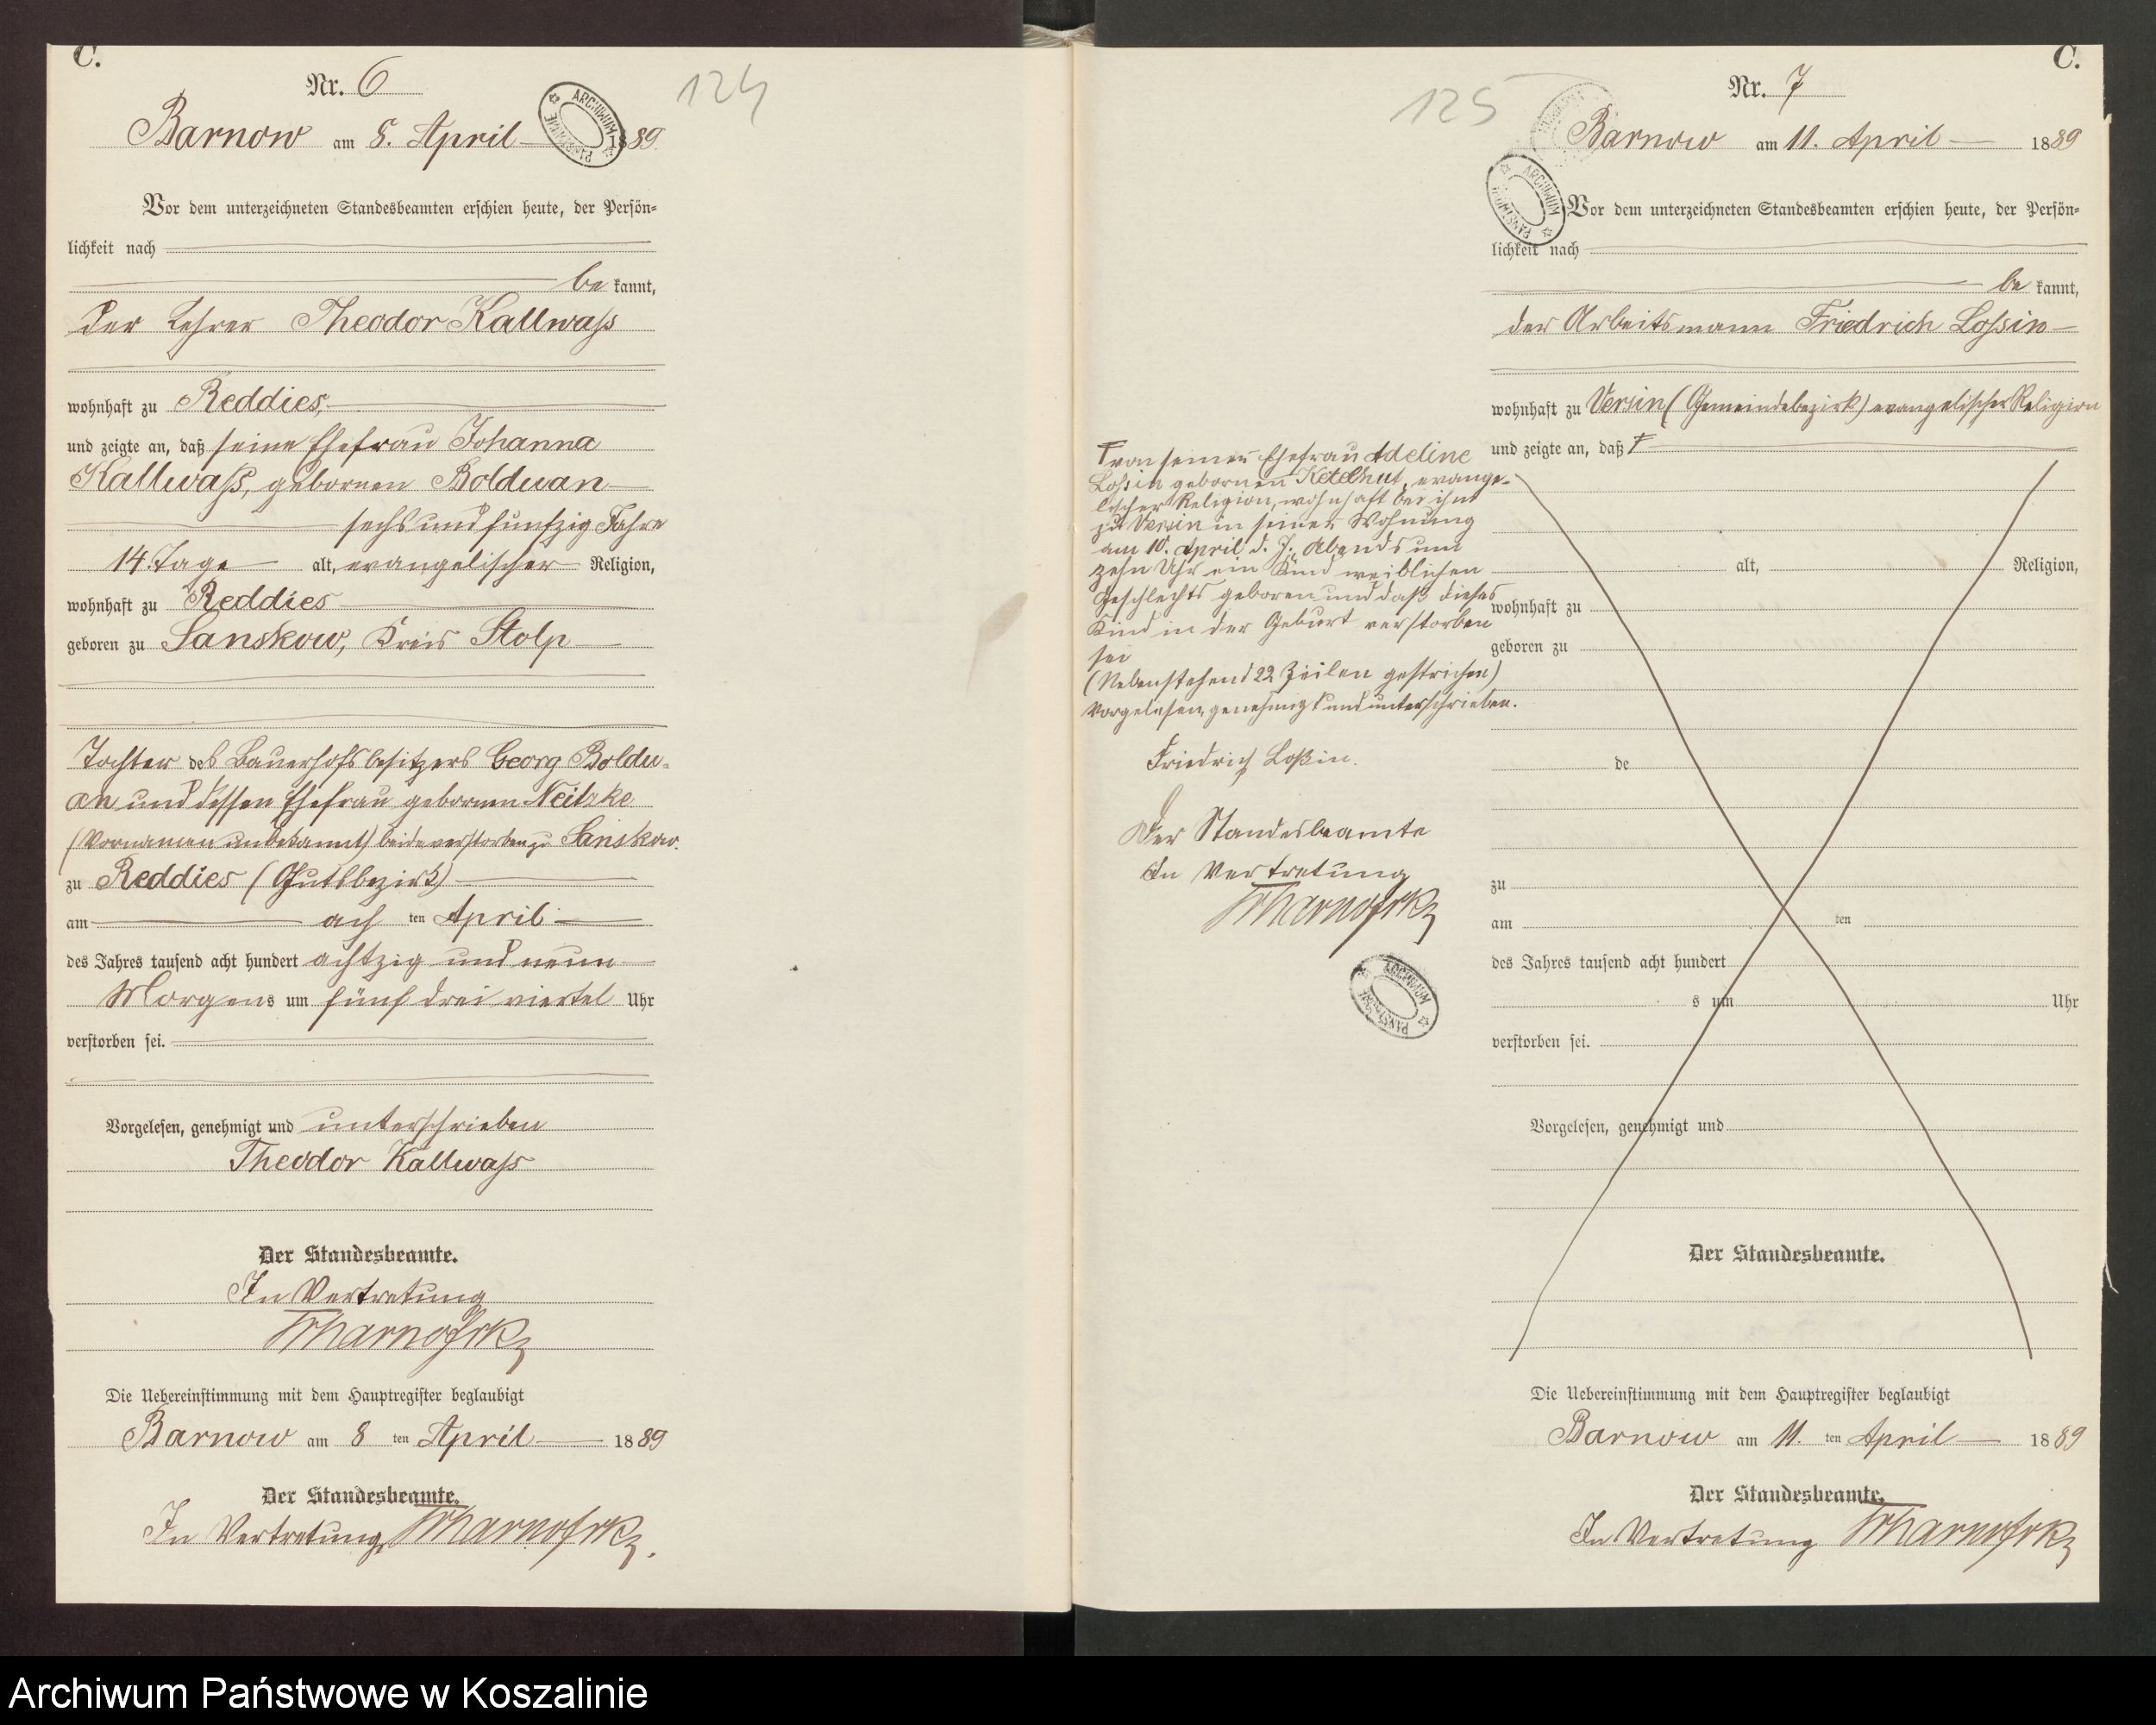 C.
Nr. 6
124
Barnow am 8. April 1889.
ARCHIWUM PAŃSTWOWE
Vor dem unterzeichneten Standesbeamten erschien heute, der Persön-
lichkeit nach
be kannt,
der Lehrer Theodor Kallwaß
wohnhaft zu Reddies,
und zeigte an, daß seine Ehefrau Johanna
Kallwaß, geborenen Bolduan
sechs und fünfzig Jahre
14 Tage alt, evangelischer Religion,
wohnhaft zu Reddies
geboren zu Sanskow, Kreis Stolp
Tochter des Bauerhofsbesitzers Georg Boldu-
an und dessen Ehefrau gebornen Neitzke
(Vornamen unbekannt) beide verstorben zu Sanskow.
zu Reddies (Gutsbezirk)
am ach ten April
des Jahres tausend acht hundert achtzig und neun
Morgens um fünf drei viertel Uhr
verstorben sei.
Vorgelesen, genehmigt und unterschrieben
Theodor Kallwaß
Der Standesbeamte.
In Vertretung
Die Uebereinstimmung mit dem Hauptregister beglaubigt
Barnow am 8 ten April 1889
Der Standesbeamte.
In Vertretung
C.
Nr. 7
125
Barnow am 11. April 1889
ARCHIWUM PAŃSTWOWE
Vor dem unterzeichneten Standesbeamten erschien heute, der Persön-
lichkeit nach
be kannt,
der Arbeitsmann Friedrich Loßin
wohnhaft zu Versin (Gemeindebezirk) evangelischer Religion
und zeigte an, daß
von seiner Ehefrau Adeline
Loßin gebornen Ketelhut, evange-
lischer Religion, wohnhaft bei ihm
zu Versin in seiner Wohnung
am 10. April d. J. Abends um
zehn Uhr ein Kind weiblichen
Geschlechts geboren und daß dieses
Kind in der Geburt verstorben
sei
(Nebenstehend 22 Zeilen gestrichen)
Vorgelesen, genehmigt und unterschrieben.
Friedrich Loßin.
Der Standesbeamte
In Vertretung
ARCHIWUM PAŃSTWOWE
alt, Religion,
wohnhaft zu
geboren zu
de
zu
am ten
des Jahres tausend acht hundert
s um Uhr
verstorben sei.
Vorgelesen, genehmigt und
Der Standesbeamte.
Die Uebereinstimmung mit dem Hauptregister beglaubigt
Barnow am 11. ten April 1889
Der Standesbeamte.
In Vertretung
Archiwum Państwowe w Koszalinie